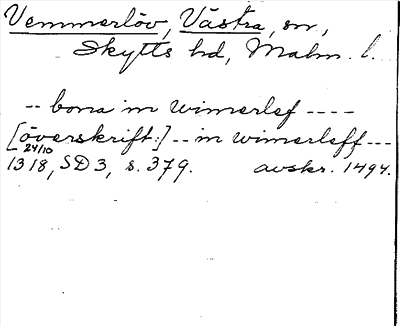 Vemmerlöv, Västra, sn,
Skytts hd, Malm. l.
-- bona in wimerlef ----
[överskrift:] -- in wimerleff ---
24/10
1318, SD 3, s. 379. avskr. 1494.